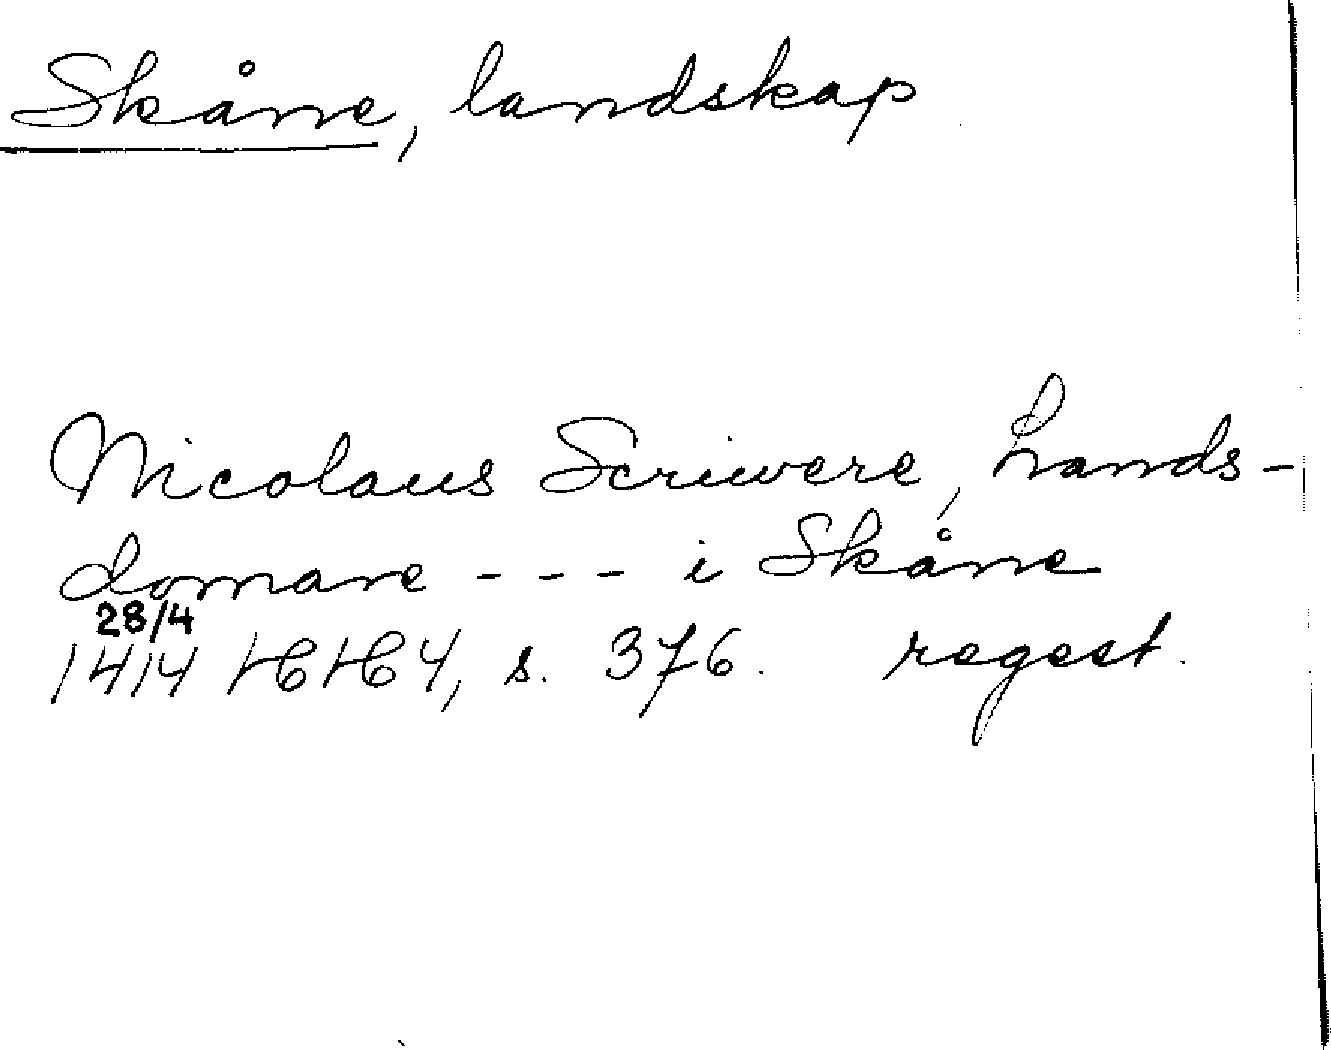 Skåne, landskap
Nicolaus Scriwere, Lands-
domare - - - i Skåne
28/4
1414 s. 376. regest.